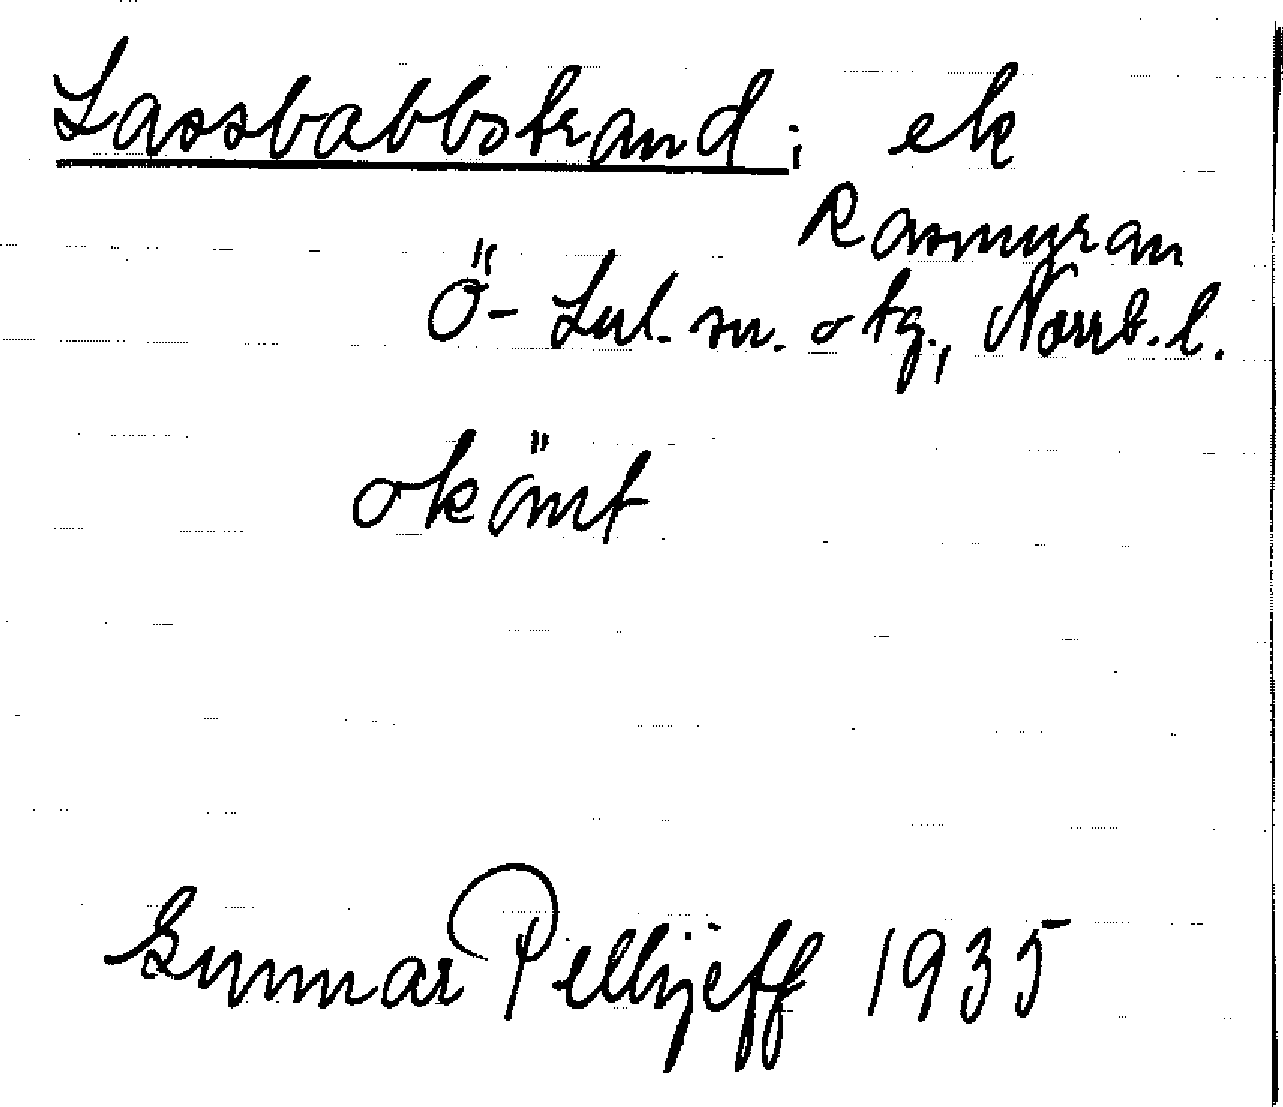 Lassbabbstrand; ek
Rasmyran
Ö-Lul. sn. o tg., Norrb. l.
okänt
Gunnar Pellijeff 1935